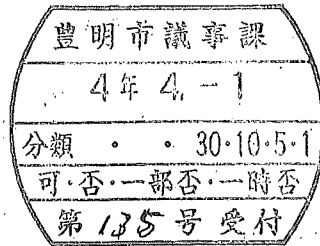 豊明市議事課
4年 4. - 1
分類 ・ ・ 30・10・5・1
可・否・一部否・一時否
第 135 号 受付